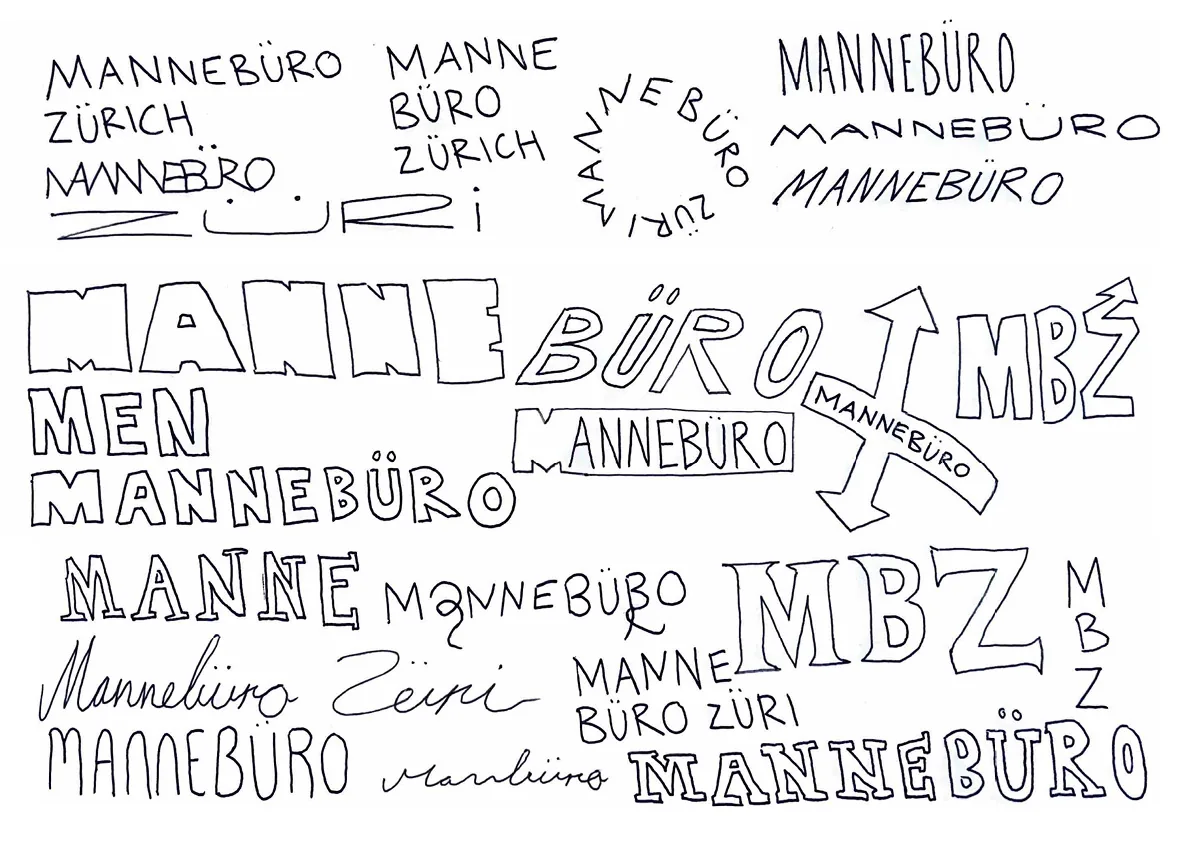 MANNEBÜRO
ZÜRICH
MANNEBÜRO
ZÜRi
MANNE
BÜRO
ZÜRICH
MANNEBÜRO ZÜRI
MANNEBÜRO
MANNEBÜRO
MANNEBÜRO
MANNE
BÜRO
MANNEBÜRO
MBZ
MEN
MANNEBÜRO
MANNEBÜRO
MANNE
MANNEBÜRO
MBZ
M
B
Z
Mannebüro Züri
MANNE
BÜRO ZÜRI
MANNEBÜRO
Manbüro
MANNEBÜRO